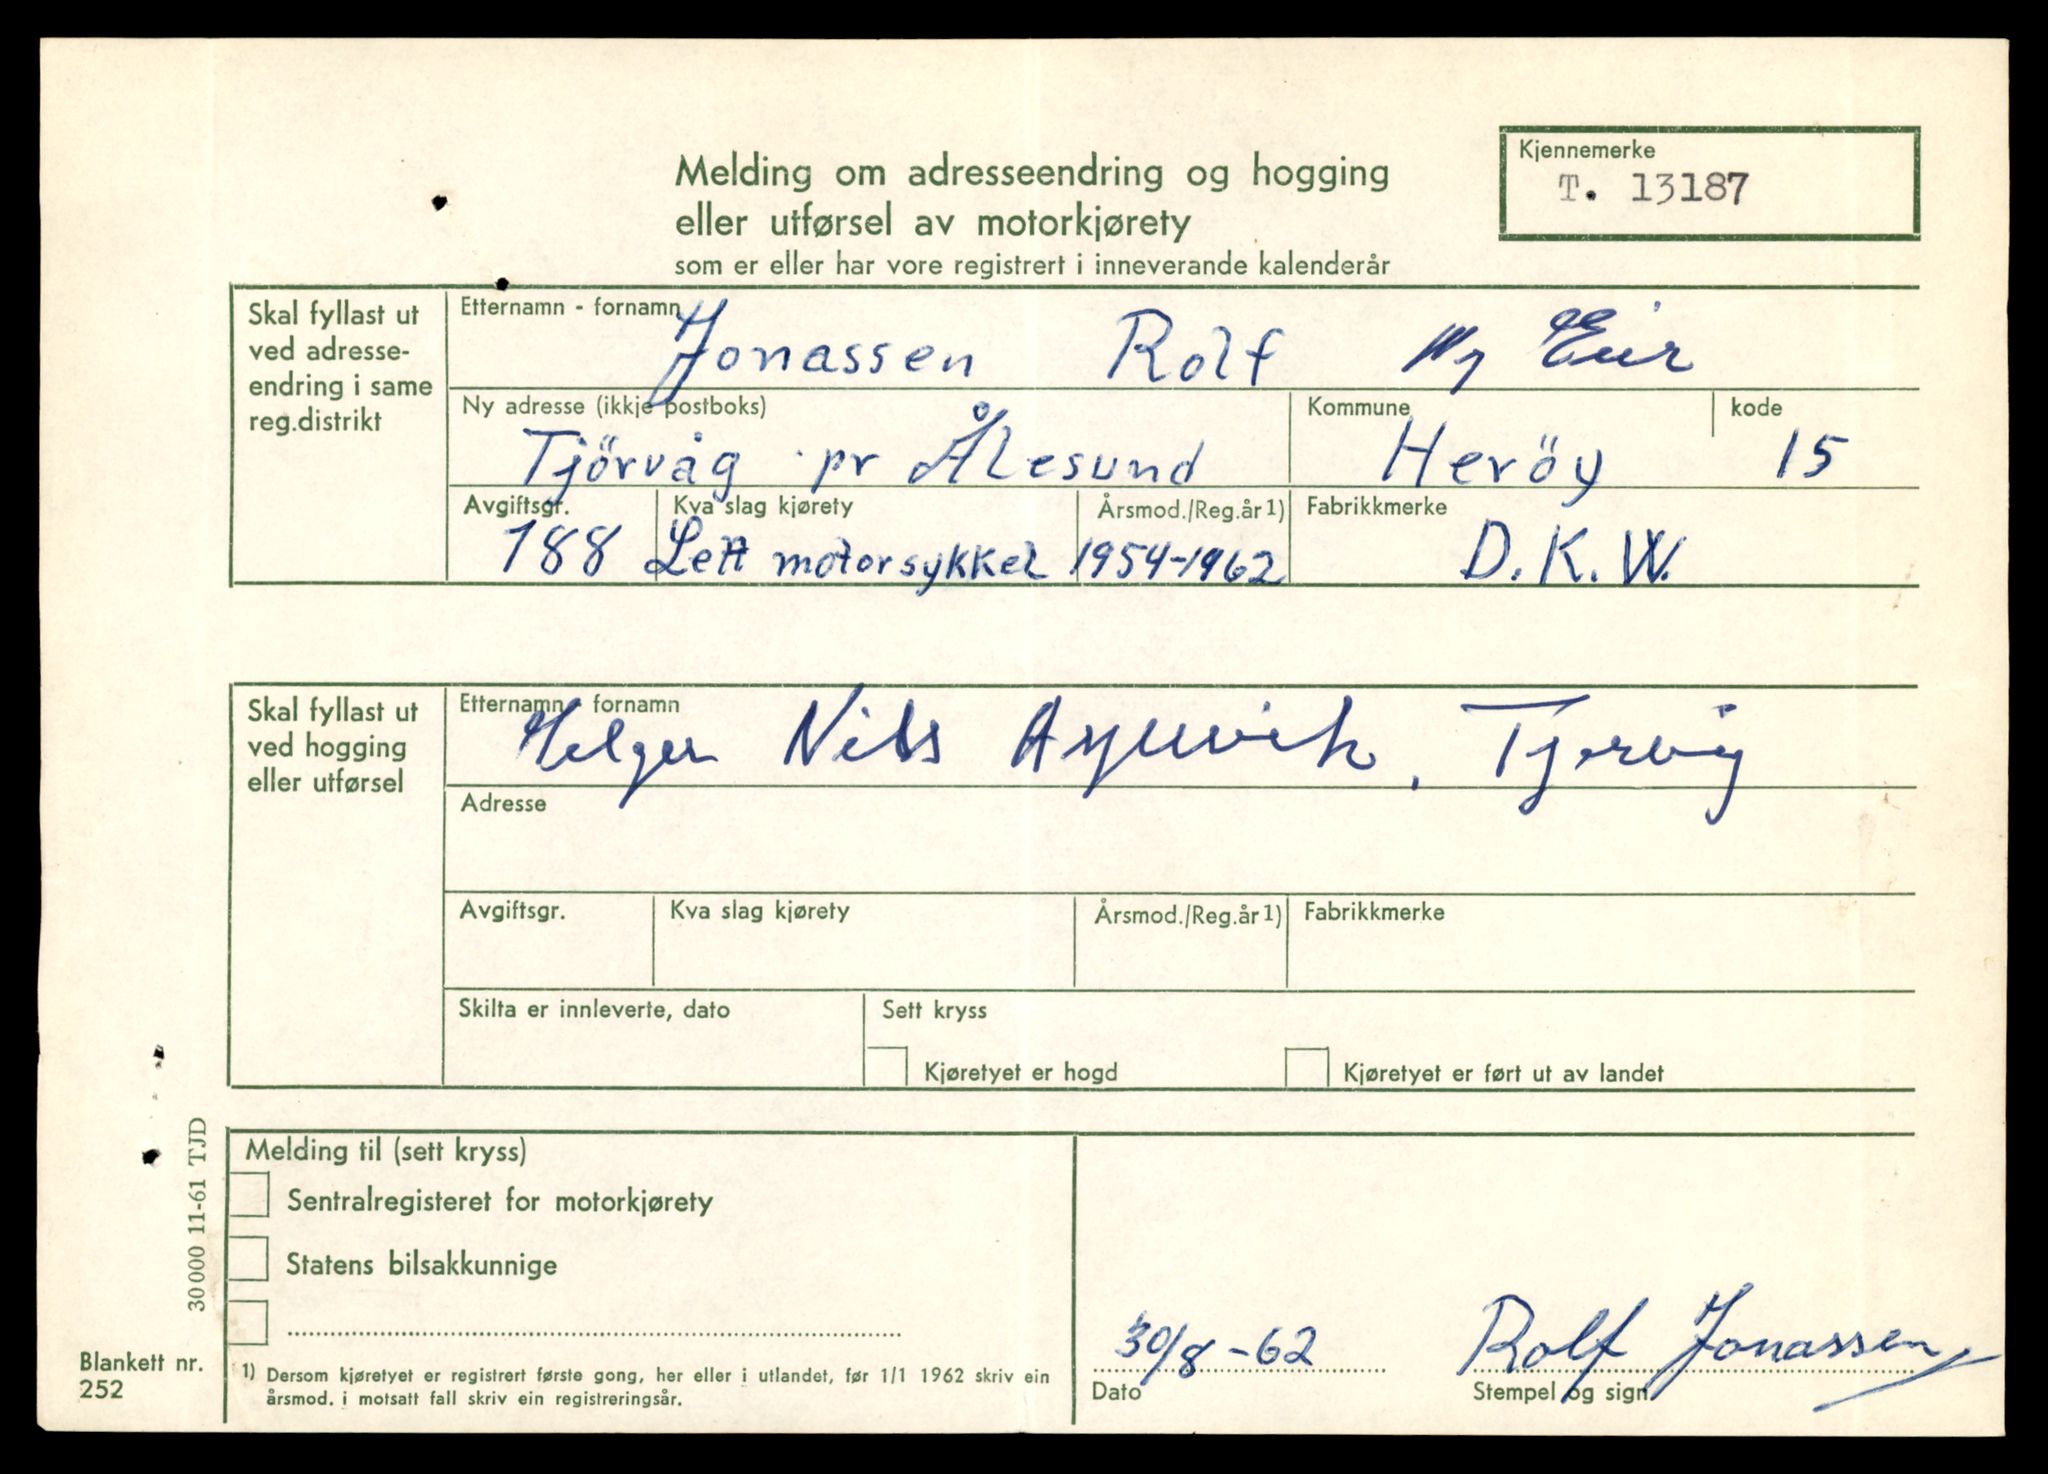 Melding om adresseendring og hogging
eller utførsel av motorkjørety
som er eller har vore registrert i inneverande kalenderår
Kjennemerke
T. 13187
Skal fyllast ut
ved adresse-
endring i same
reg.distrikt
Etternamn - fornamn
Jonassen Rolf Ny Eier
Ny adresse (ikkje postboks)
Tjörvåg pr Ålesund
Kommune
Heröy
kode
15
Avgiftsgr.
188
Kva slag kjørety
Lett motorsykkel
Årsmod./Reg.år 1)
1954-1962
Fabrikkmerke
D.K.W.
Skal fyllast ut
ved hogging
eller utførsel
Etternamn - fornamn
Selger Nils
Adresse
Avgiftsgr.
Kva slag kjørety
Årsmod./Reg.år 1)
Fabrikkmerke
Skilta er innleverte, dato
Sett kryss
Kjøretyet er hogd
Kjøretyet er ført ut av landet
Melding til (sett kryss)
Sentralregisteret for motorkjørety
Statens bilsakkunnige
1) Dersom kjøretyet er registrert første gong, her eller i utlandet, før 1/1 1962 skriv ein
årsmod. i motsatt fall skriv ein registreringsår.
30/8 -62
Dato
Rolf Jonassen
Stempel og sign.
30000 11-61 TJD
Blankett nr.
252